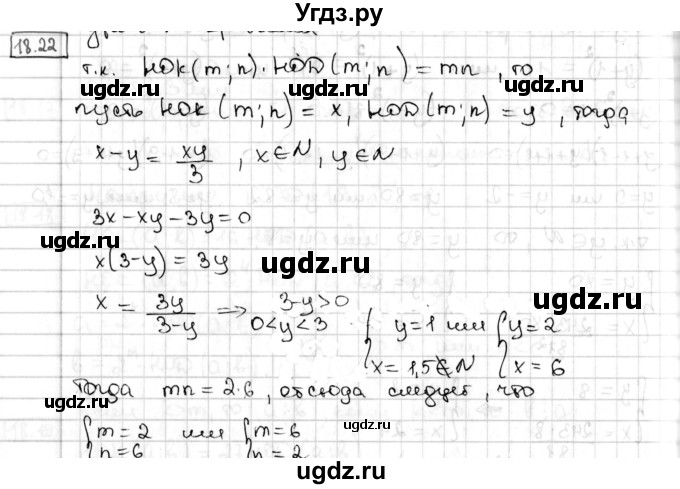 Угдз.ру
18.22
т.к. НОК(m;n)·НОД(m;n)=mn, то
ugdz.ru ugdz.ru
пусть НОК(m;n)=x, НОД(m;n)=y, тогда
x-y=xy/3, x∈N, y∈N
3x-xy-3y=0
ugdz.ru
x(3-y)=3y
ugdz.ru
x=3y/(3-y) ⇒ 3-y>0
ugdz.ru
0<y<3 { y=1 или { y=2
{ x=1,5∉N { x=6
Тогда mn=2·6, отсюда следует, что
ugdz.ru ugdz.ru
{ m=2 или { m=6
{ n=6 { n=2
ugdz.ru
ugdz.ru